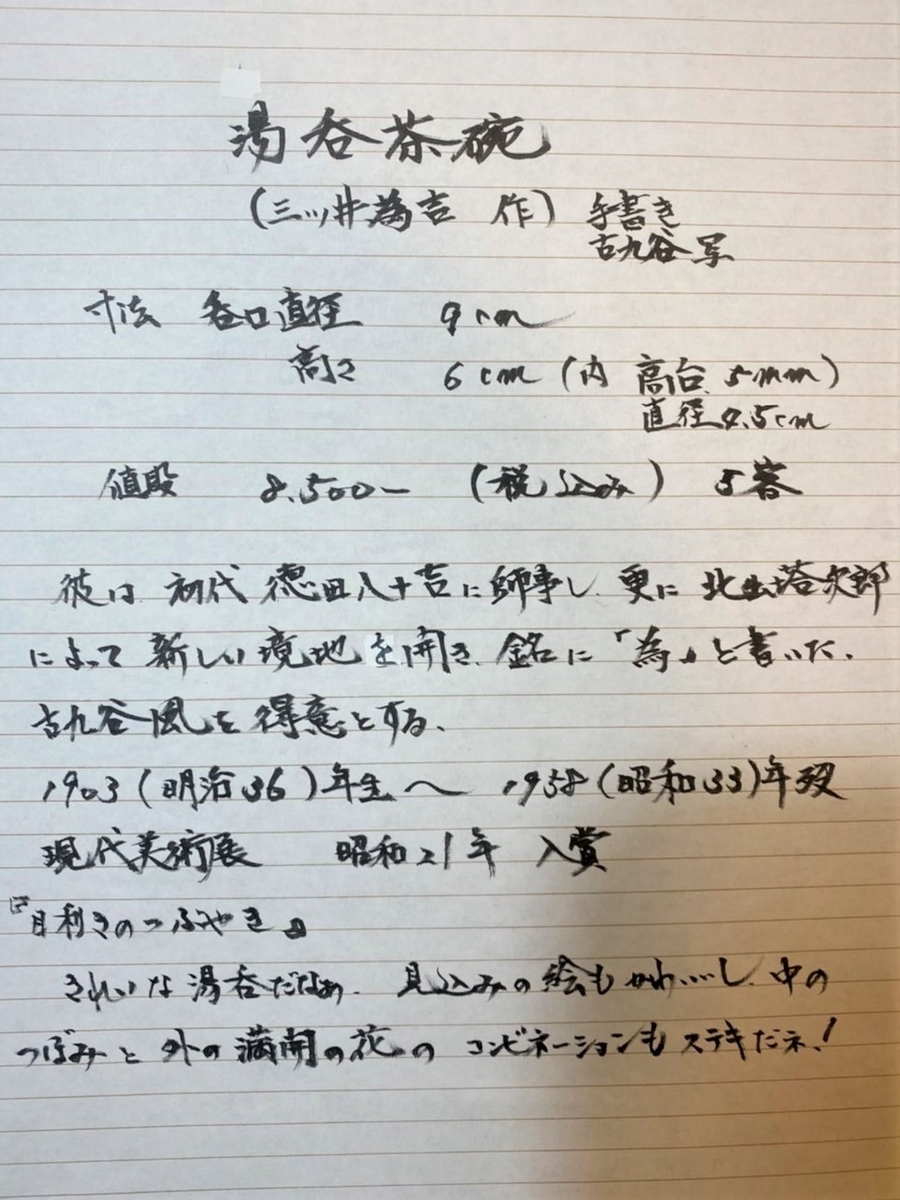 湯呑茶碗
(三ッ井為吉 作) 手書き
古九谷写
寸法 呑口直径 9cm
高さ 6cm (内 高台 5mm)
直径4.5cm
値段 8,500ー (税込み) 5客
彼は 初代 徳田八十吉に師事し、更に 北出塔次郎
によって 新しい境地を開き、銘に「為」と書いた。
古九谷風を得意とする。
1903(明治36)年生〜 1958(昭和33)年歿
現代美術展 昭和21年 入賞
『目利きのつぶやき』
きれいな湯呑だなぁ、見込みの絵もかわいいし、中の
つぼみと外の満開の花の コンビネーションもステキだネ!